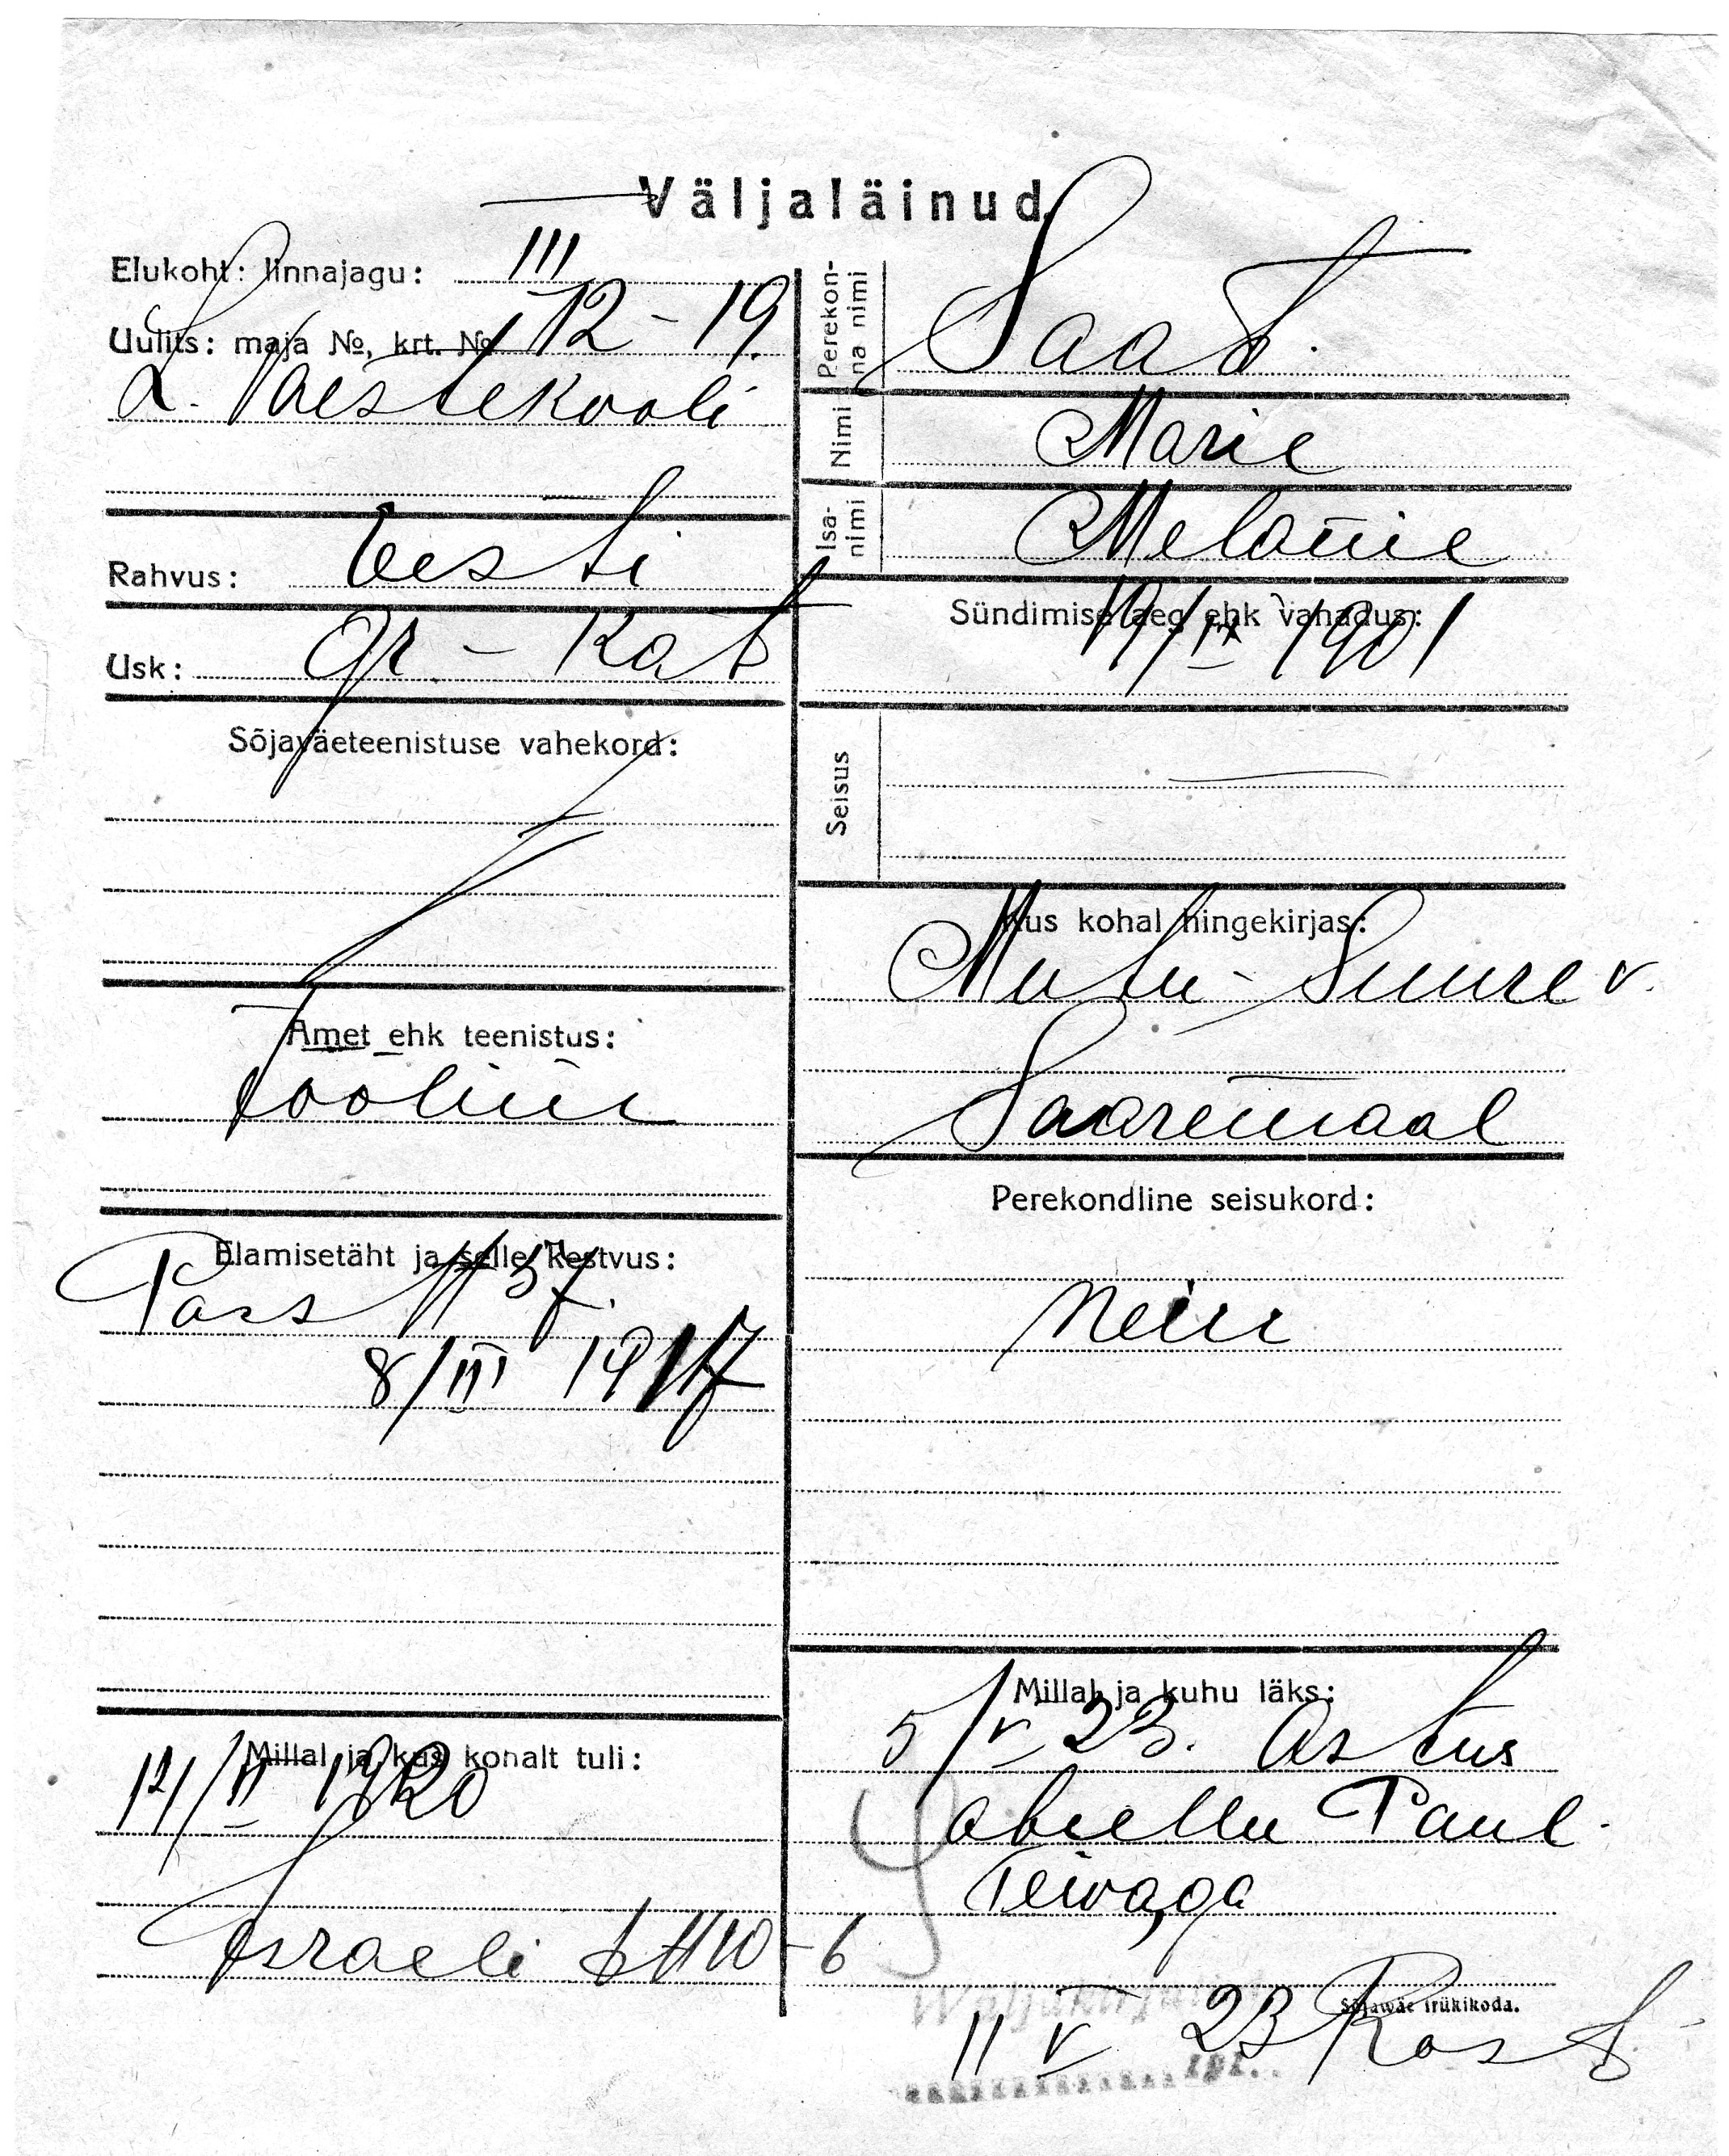 Väljaläinud
Elukoht: linnajagu: III
Uulits: maja №, krt. № 12 - 19.
L. Vaestekooli
Rahvus: Eesti
Usk: Gr - Kat
Sõjaväeteenistuse vahekord:
Amet ehk teenistus:
Tööline
Elamisetäht ja selle kestvus:
Pass № 37.
8/III 1917
Millal ja kus kohalt tuli:
/II 1920
Israeli t № 10 - 6
Perekonna nimi Saat.
Nimi Marie
Isanimi Melanie
Sündimise aeg ehk vanadus:
19/IX 1901
Seisus
Kus kohal hingekirjas:
Muhu-Suure v.
Saaremaal
Perekondline seisukord:
Neiu
Millal ja kuhu läks:
5/V 23. Astus
abiellu Paul
Teivaga
Sõjawäe trükikoda.
11 V 23 Rost
192